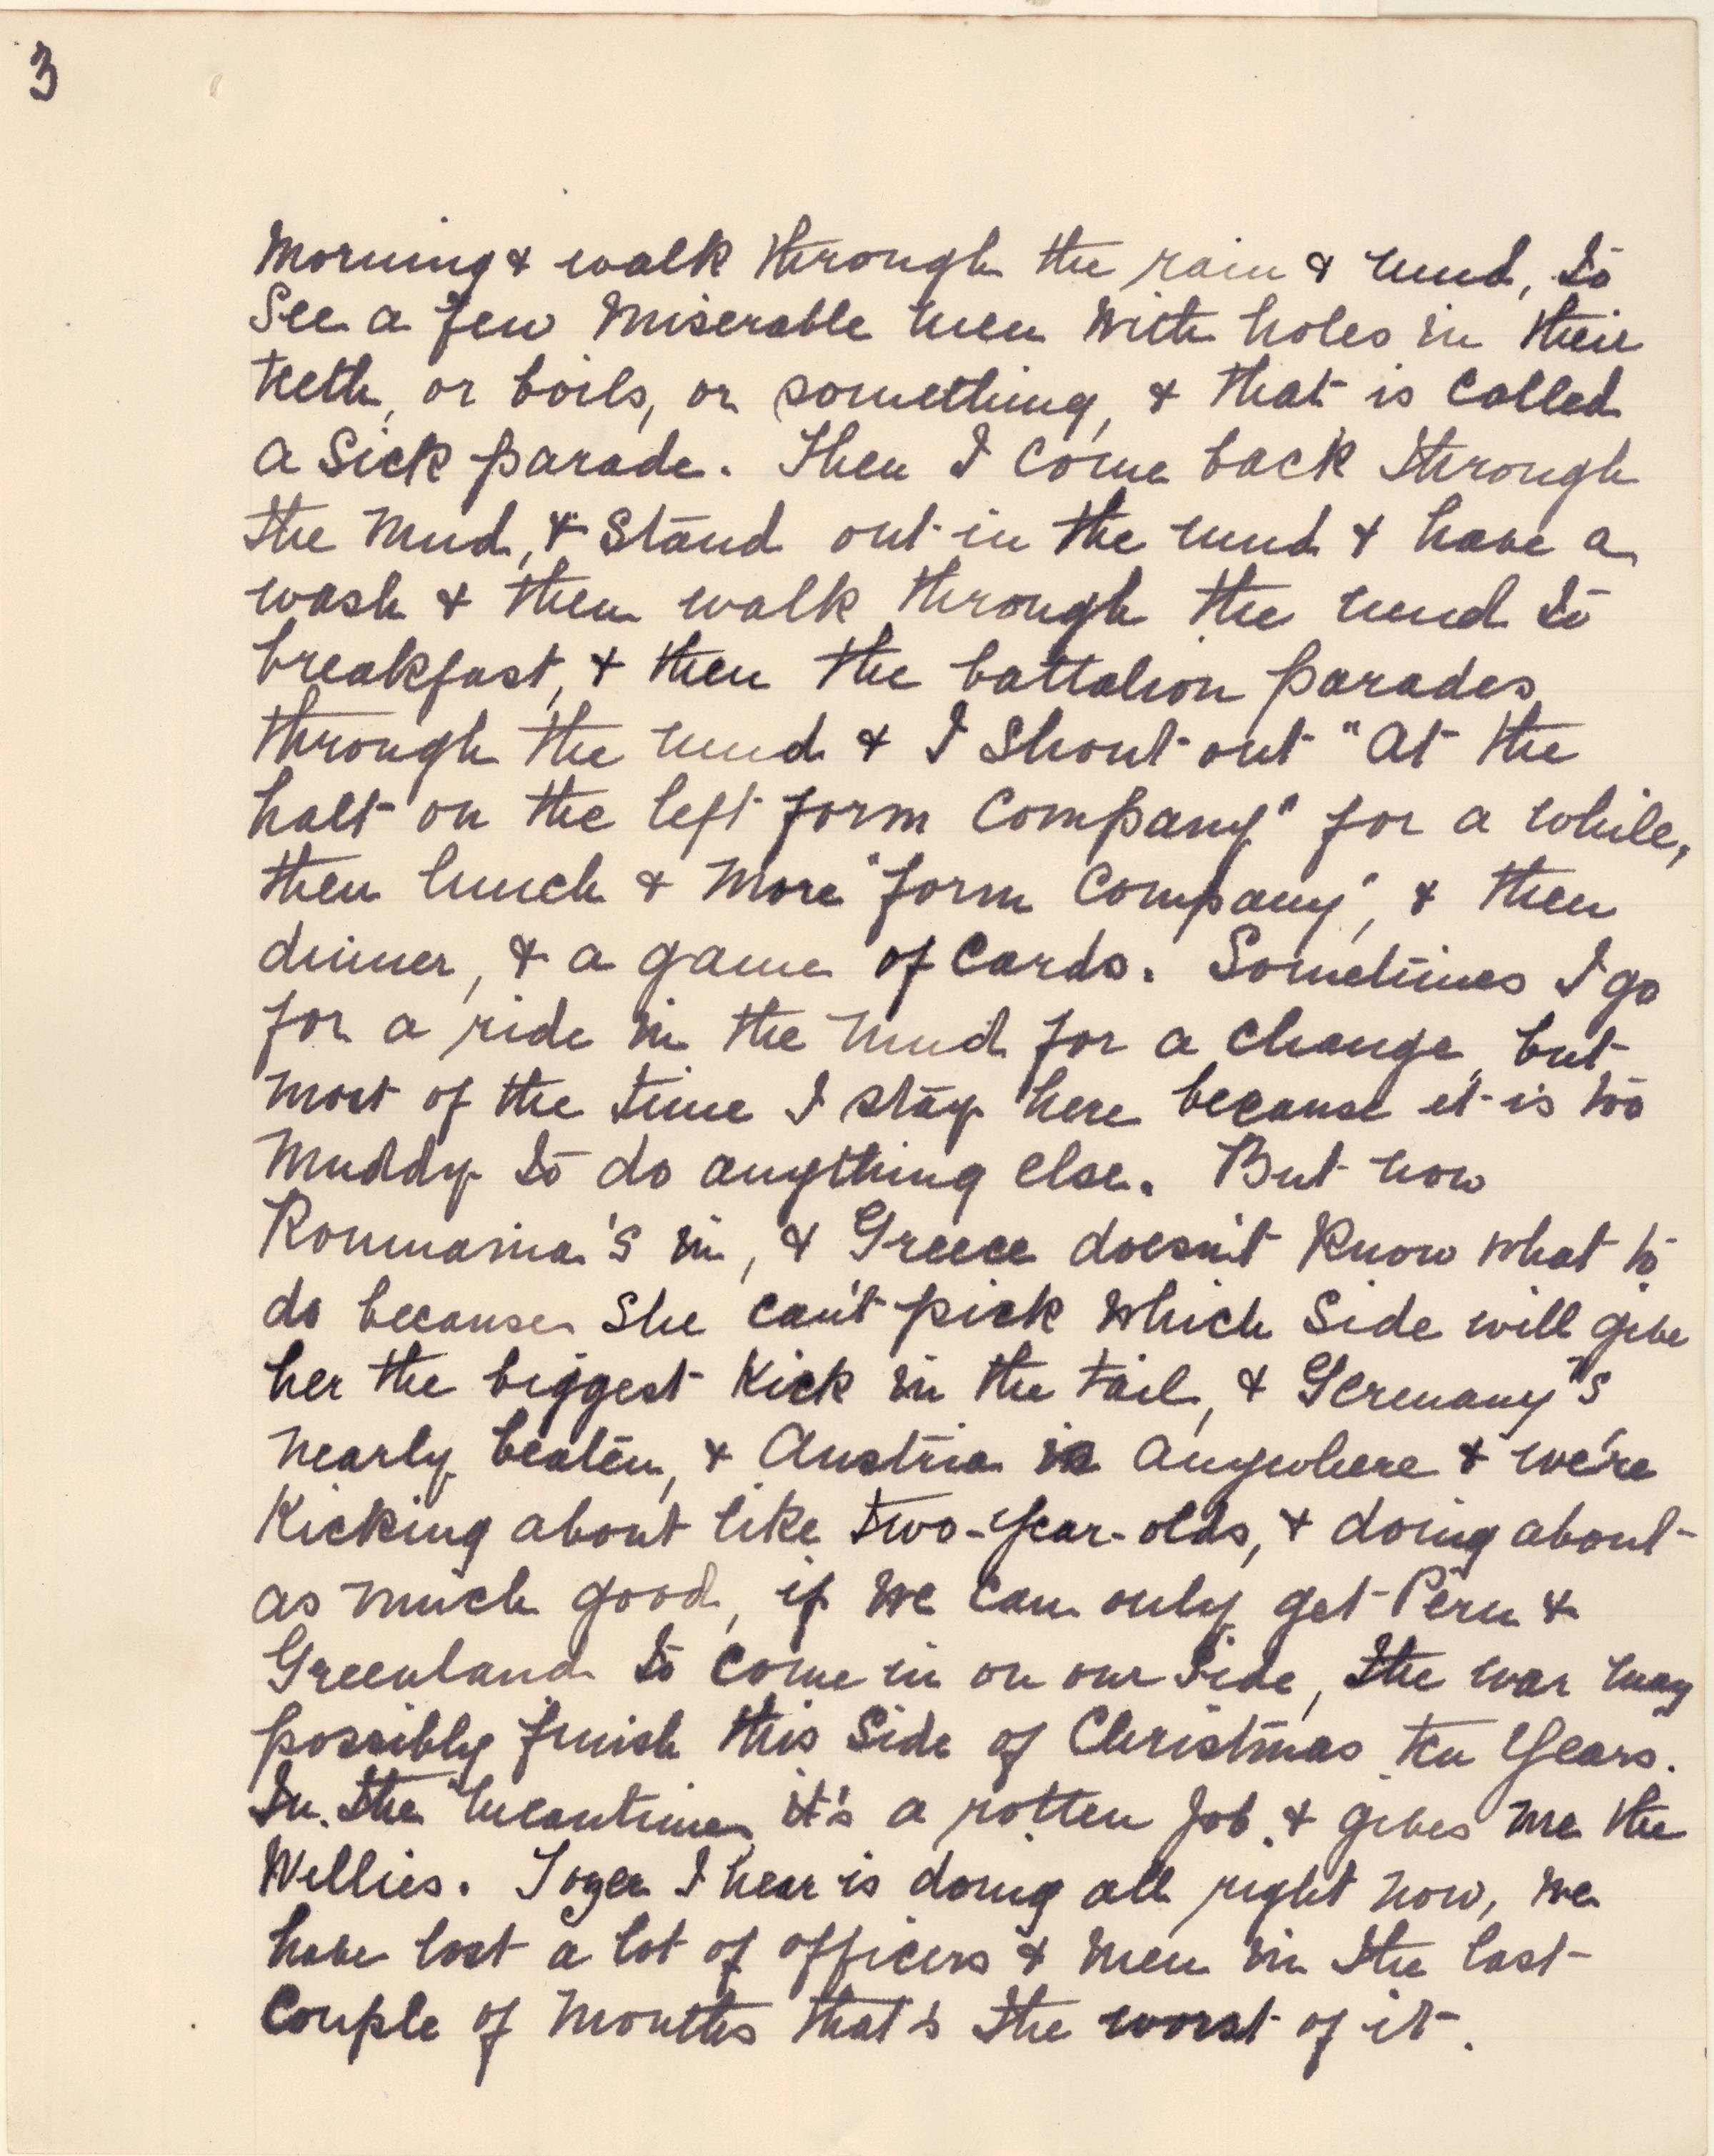 3
Morning & walk through the rain & mud, to
see a few miserable men with holes in their
teeth, or boils, or something, & that is called
a Sick parade. Then I come back through
the mud, & stand out in the mud & have a
wash & then walk through the mud to
breakfast, & then the battalion parades
through the mud & I shout out "At the
halt on the left form Company" for a while,
then lunch & more "form Company", & then
dinner, & a game of cards. Sometimes I go
for a ride in the mud for a change, but
most of the time I stay here because it is too
muddy to do anything else. But now
Roumania's in, & Greece doesn't know what to
do because she can't pick which side will give
her the biggest kick in the tail, & Germany's
nearly beaten, & Austria is anywhere & we're
kicking about like two-year-olds, & doing about
as much good, if we can only get Peru &
Greenland to come in on our side, the war may
possibly finish this side of Christmas ten years.
In the meantime, it's a rotten job, & gives me the
Willies. I hear is doing all right now, we
have lost a lot of officers & men in the last
couple of months that's the worst of it.